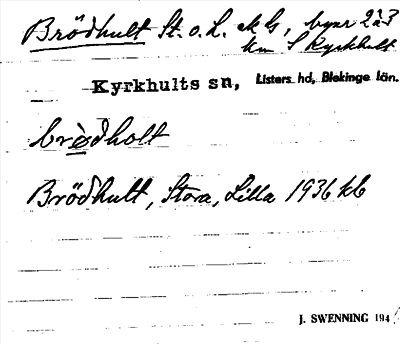 Brödhult St. o. L. ek G, byar 2 à 3
km S Kyrkhult
Kyrkhults sn, Listers hd, Blekinge län.
brødholt
Brödhult, Stora, Lilla 1936 kb
J. SWENNING 194